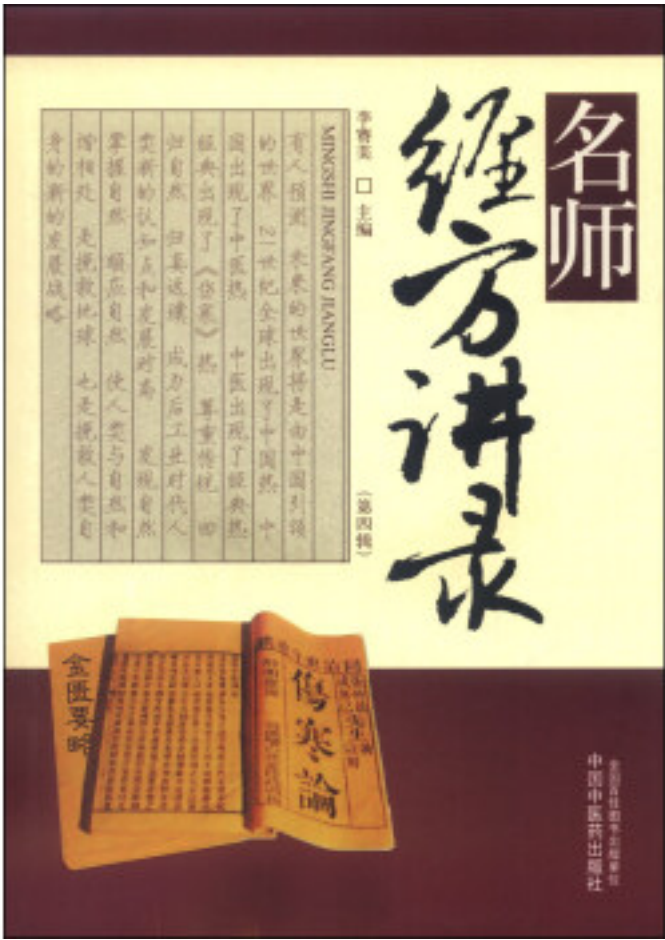 名师
经方讲录
李赛美 □ 主编
（第四辑）
MINGSHI JINGFANG JIANGLU
有人预测 未来的世界将是由中国引领
的世界 21世纪全球出现了中国热 中
国出现了中医热 中医出现了经典热
经典出现了《伤寒》热 尊重传统 回
归自然 归真返璞 成为后工业时代人
类新的认知点和发展对高 发现自然
掌握自然 顺应自然 使人类与自然和
谐相处 是挽救地球 也是挽救人类自
身的新的发展战略
金匮要略
伤寒論
全国百佳图书出版单位
中国中医药出版社